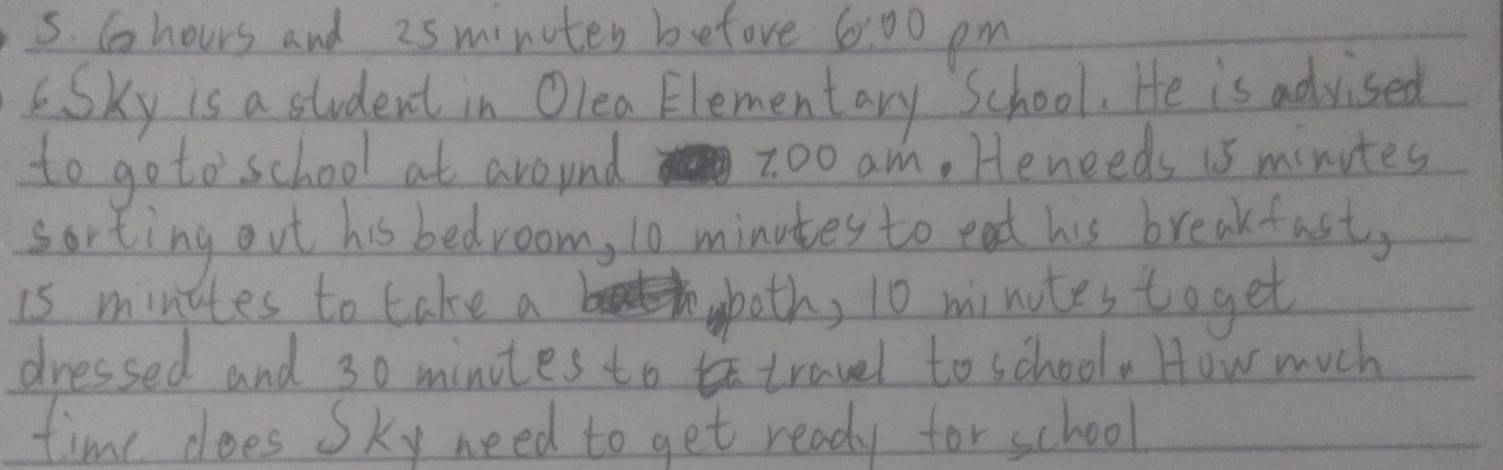 5. 6 hours and 25 minutes before 6:00 pm
6 Sky is a student in Olea Elementary School. He is advised
to go to school at around 7:00 am. He needs 15 minutes
sorting out his bedroom, 10 minutes to eat his breakfast,
15 minutes to take a bath, 10 minutes to get
dressed and 30 minutes to travel to school. How much
time does Sky need to get ready for school